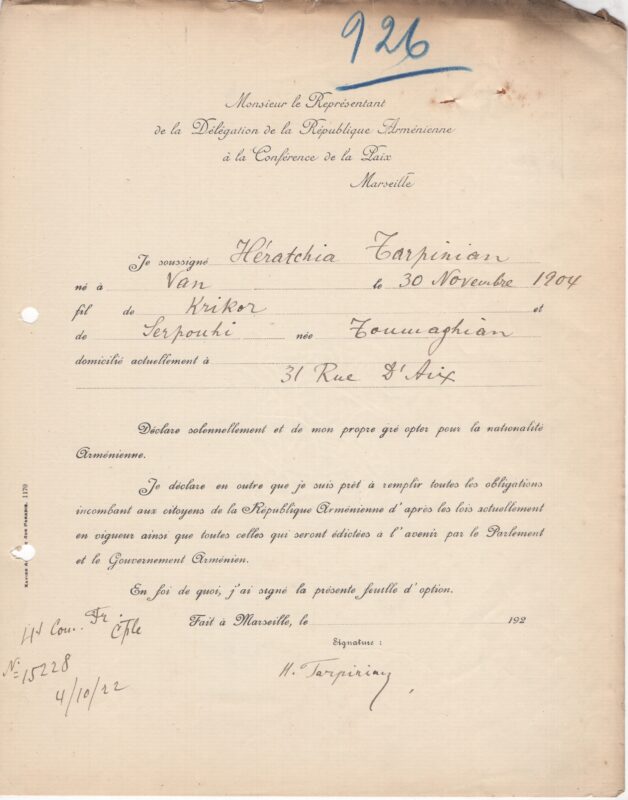 926
Monsieur le Représentant
de la Délégation de la République Arménienne
à la Conférence de la Paix
Marseille
Je soussigné Hératchia Tarpinian
né à Van le 30 Novembre 1904
fil de Krikor et
de Serpouhi née Toumaghian
domicilié actuellement à
31 Rue D'Aix
Déclare solennellement et de mon propre gré opter pour la nationalité
Arménienne.
Je déclare en outre que je suis prêt à remplir toutes les obligations
incombant aux citoyens de la République Arménienne d'après les lois actuellement
en vigueur ainsi que toutes celles qui seront édictées à l'avenir par le Parlement
et le Gouvernement Arménien.
En foi de quoi, j'ai signé la présente feuille d'option.
Fait à Marseille, le 192
Signature :
H. Tarpinian
Fr.
Con. Cple
Nº 15228
4/10/22
1170